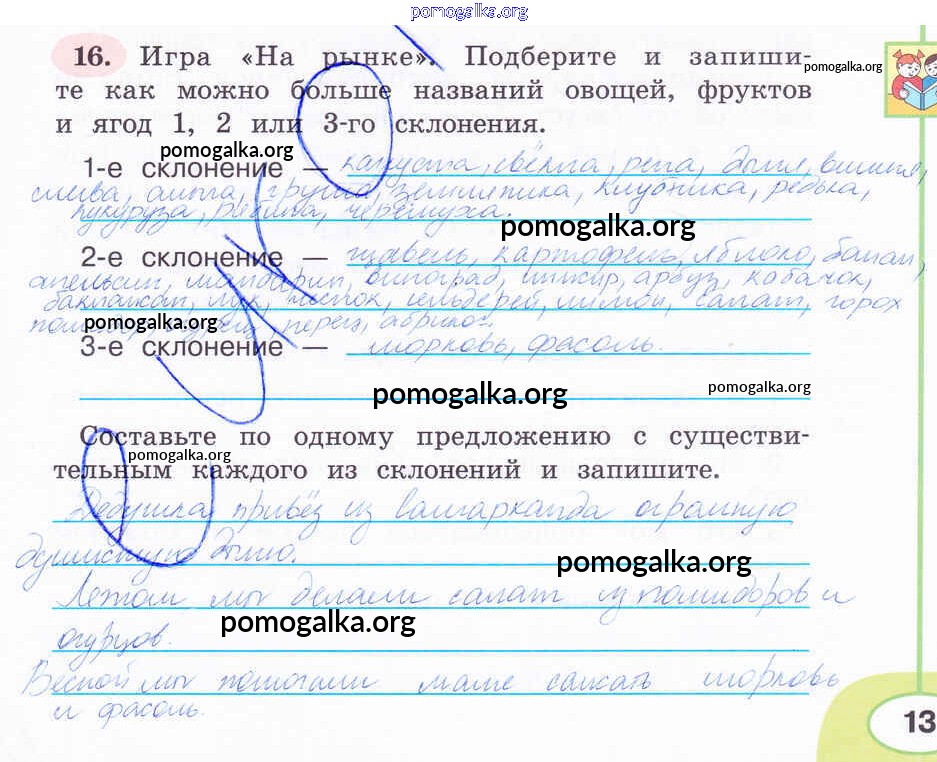 pomogalka.org
16. Игра «На рынке». Подберите и запиши-
pomogalka.org
те как можно больше названий овощей, фруктов
и ягод 1, 2 или 3-го склонения.
pomogalka.org
1-е склонение — капуста, свёкла, репа, дыня, вишня,
слива, айва, груша, земляника, клубника, редька,
кукуруза, рябина, черёмуха.
pomogalka.org
2-е склонение — щавель, картофель, яблоко, банан,
апельсин, мандарин, виноград, инжир, арбуз, кабачок,
баклажан, лук, чеснок, сельдерей, лимон, салат, горох
pomogalka.org
перец, абрикос.
3-е склонение — морковь, фасоль.
pomogalka.org
pomogalka.org
Составьте по одному предложению с существи-
pomogalka.org
тельным каждого из склонений и запишите.
Дедушка привёз из огромную
душистую дыню.
pomogalka.org
Летом мы делали салат из помидоров и
pomogalka.org
огурцов.
Весной мы помогали маме сажать морковь
и фасоль.
13